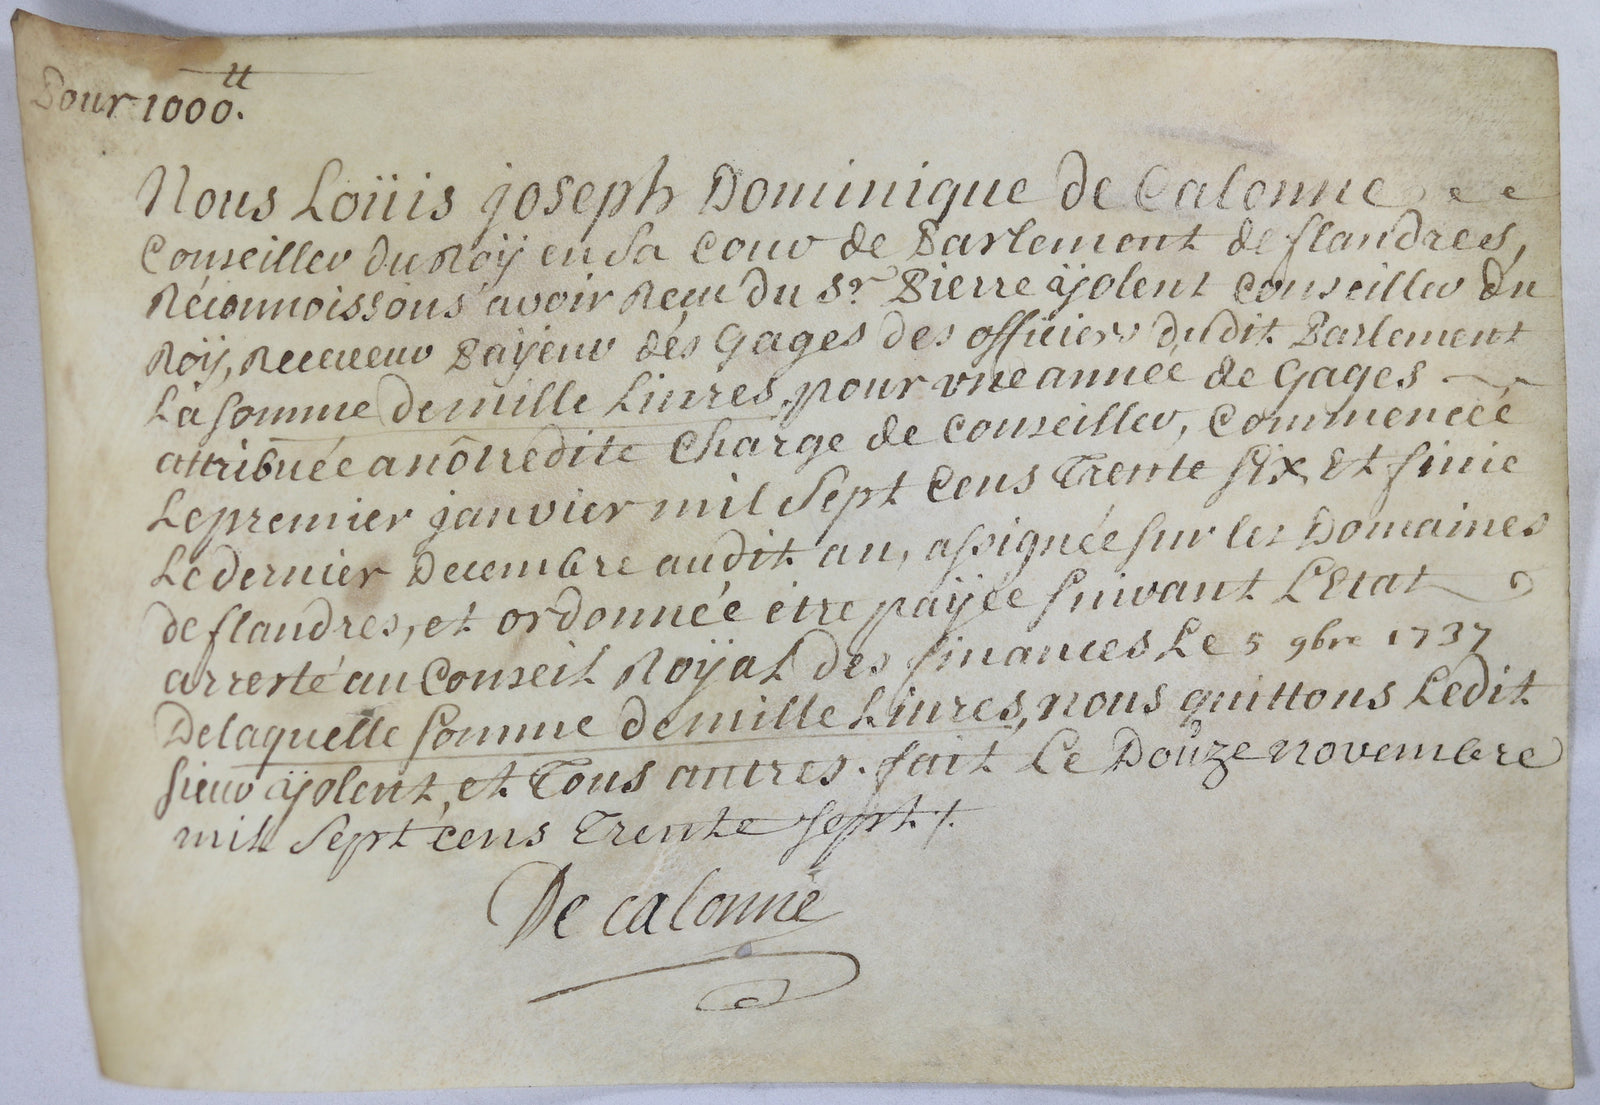 Pour 1000.tt
Nous Loüis joseph Dominique de Calonne
Conseiller du Roÿ en sa Cour de Parlement de flandres,
Réconnoissons avoir Reçu du Sr. Pierre ÿolent Conseiller du
Roÿ, Receveur Païeur dés Gages des officiers dudit Parlement
La somme de mille Livres, pour une année de Gages
attribuée a nôtredite Charge de Conseiller, Commencée
Le premier janvier mil sept Cens Trente six, et finie
Le dernier Decembre audit an, assignée sur les Domaines
de flandres, et ordonnée être païée suivant L'Etat
arresté au Conseil Roÿal des finances Le 5 9bre 1737
De laquelle somme de mille Livres, nous quittons Ledit
sieur ÿolent, et Tous autres. fait Le Douze novembre
mil sept cens Trente sept ./.
De calonne